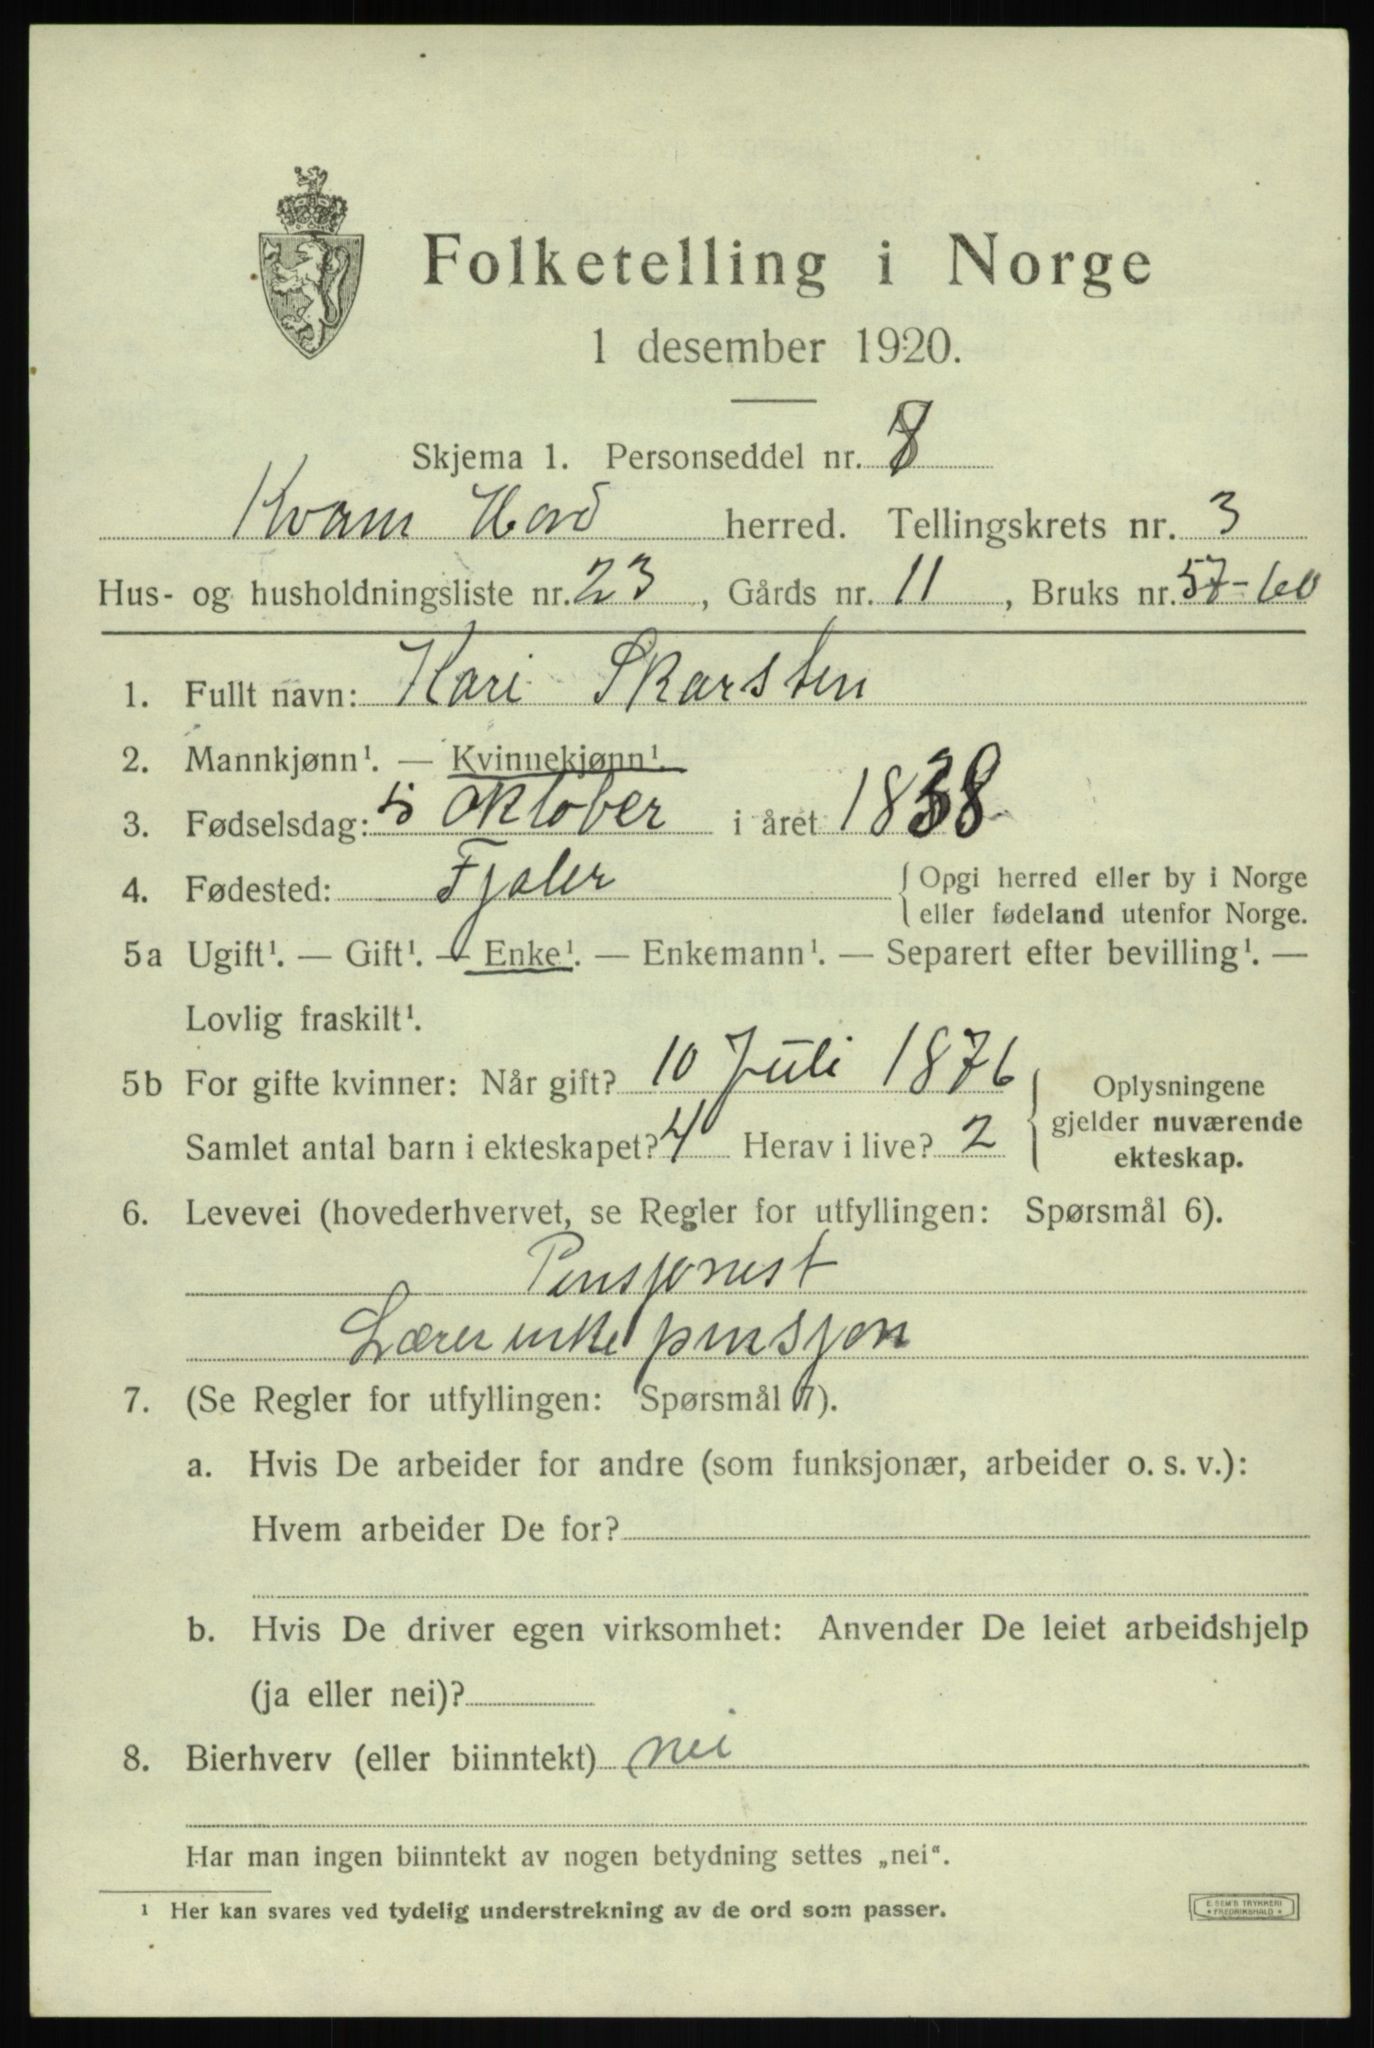 Folketelling i Norge
1 desember 1920.
Skjema 1. Personseddel nr. 8
Kvam Hord herred. Tellingskrets nr. 3
Hus- og husholdningsliste nr. 23, Gårds nr. 11, Bruks nr. 57-60
1. Fullt navn: Kari Skarsten
2. Mannkjønn¹. — Kvinnekjønn¹.
3. Fødselsdag: 5 Oktober i året 1838
4. Fødested: Fjaler { Opgi herred eller by i Norge
eller fødeland utenfor Norge.
5a Ugift¹. — Gift¹. — Enke¹. — Enkemann¹. — Separert efter bevilling¹. —
Lovlig fraskilt¹.
5b For gifte kvinner: Når gift? 10 Juli 1876
Samlet antal barn i ekteskapet? 4 Herav i live? 2
Oplysningene
gjelder nuværende
ekteskap.
6. Levevei (hovederhvervet, se Regler for utfyllingen: Spørsmål 6).
Pensjonist
Lærerenkepensjon
7. (Se Regler for utfyllingen: Spørsmål 7).
a. Hvis De arbeider for andre (som funksjonær, arbeider o. s. v.):
Hvem arbeider De for?
b. Hvis De driver egen virksomhet: Anvender De leiet arbeidshjelp
(ja eller nei)?
8. Bierhverv (eller biinntekt) nei
Har man ingen biinntekt av nogen betydning settes „nei“.
¹ Her kan svares ved tydelig understrekning av de ord som passer.
E. SEM'S TRYKKERI
* FREDRIKSHALD *